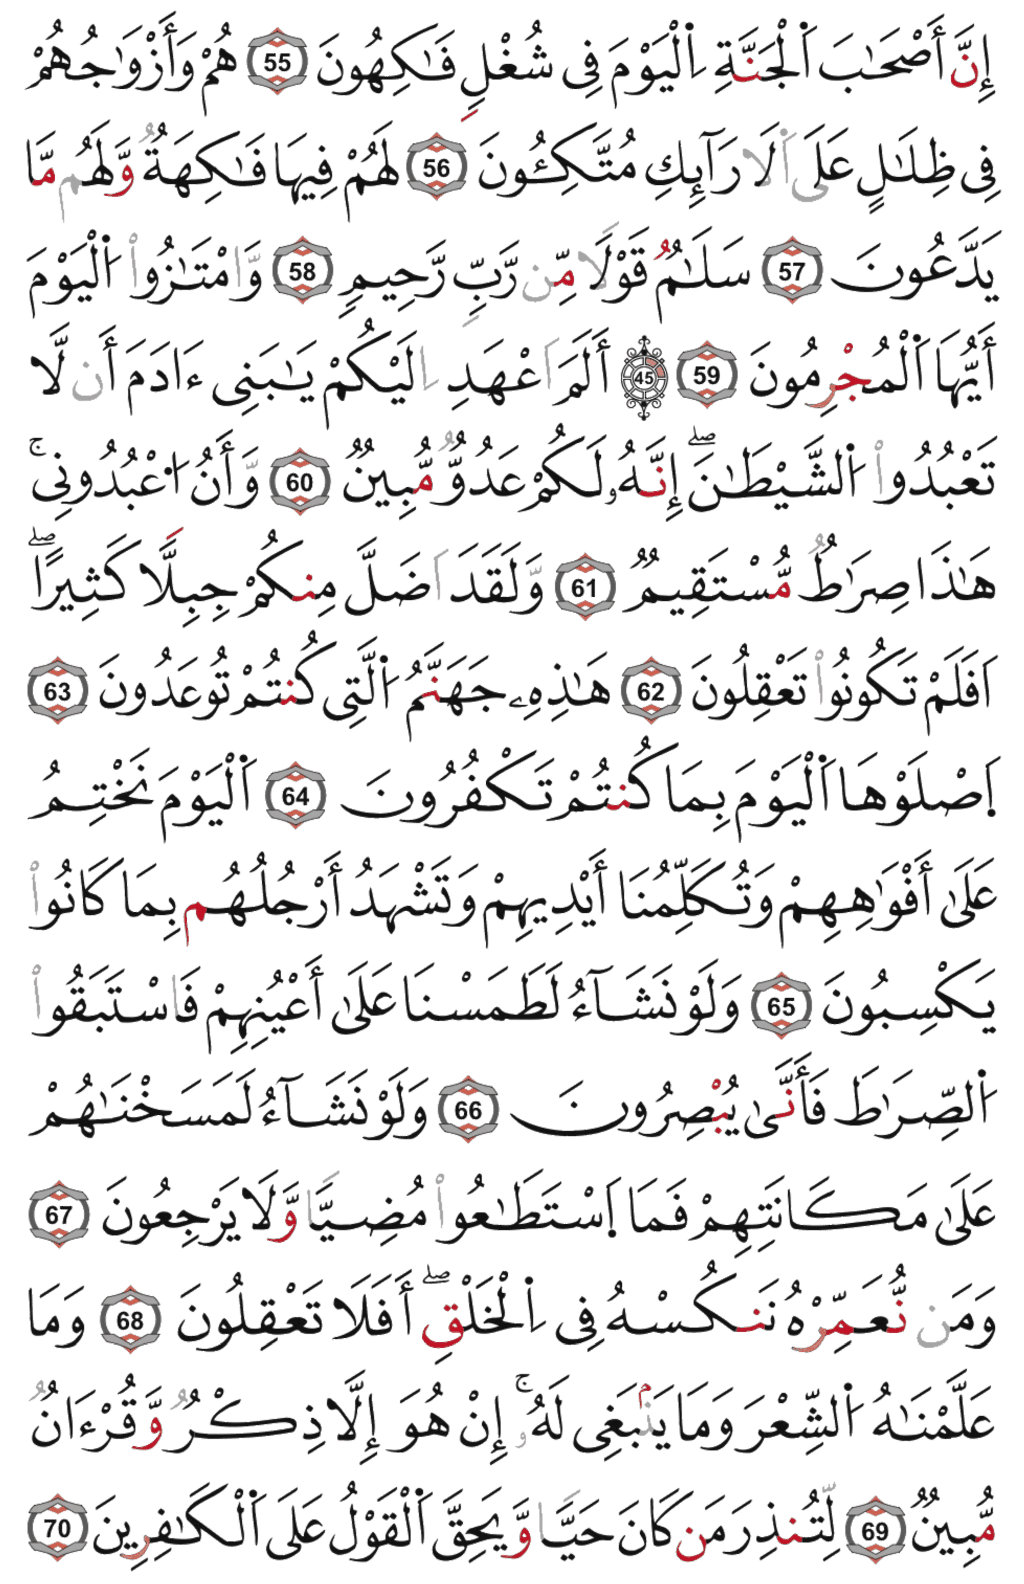 إِنَّ أَصْحَٰبَ اَ۬لْجَنَّةِ اِ۬لْيَوْمَ فِى شُغْلٍ فَٰكِهُونَ 55 هُمْ وَأَزْوَٰجُهُمْ
فِى ظِلَٰلٍ عَلَى اَ۬لَارَآئِكِ مُتَّكِـُٔونَ 56 لَهُمْ فِيهَا فَٰكِهَةٌ وَّلَهُم مَّا
يَدَّعُونَ 57 سَلَٰمٌ قَوْلًا مِّن رَّبٍّ رَّحِيمٍ 58 وَّامْتَٰزُواْ اُ۬لْيَوْمَ
أَيُّهَا اَ۬لْمُجْرِمُونَ 59 45 أَلَمَ اَعْهَدِ اِلَيْكُمْ يَٰبَنِى ءَادَمَ أَن لَّا
تَعْبُدُواْ اُ۬لشَّيْطَٰنَۖ إِنَّهُۥ لَكُمْ عَدُوٌّ مُّبِينٌ 60 وَّأَنُ اُ۟عْبُدُونِىۚ
هَٰذَا صِرَٰطٌ مُّسْتَقِيمٌ 61 وَّلَقَدَ اَضَلَّ مِنكُمْ جِبِلًّا كَثِيرًاۖ
اَفَلَمْ تَكُونُواْ تَعْقِلُونَ 62 هَٰذِهِۦ جَهَنَّمُ اُ۬لَّتِى كُنتُمْ تُوعَدُونَ 63
اِ۪صْلَوْهَا اَ۬لْيَوْمَ بِمَا كُنتُمْ تَكْفُرُونَ 64 اَ۬لْيَوْمَ نَخْتِمُ
عَلَىٰ أَفْوَٰهِهِمْ وَتُكَلِّمُنَا أَيْدِيهِمْ وَتَشْهَدُ أَرْجُلُهُم بِمَا كَانُواْ
يَكْسِبُونَ 65 وَلَوْ نَشَآءُ لَطَمَسْنَا عَلَىٰ أَعْيُنِهِمْ فَاسْتَبَقُواْ
اُ۬لصِّرَٰطَ فَأَنَّىٰ يُبْصِرُونَ 66 وَلَوْ نَشَآءُ لَمَسَخْنَٰهُمْ
عَلَىٰ مَكَانَتِهِمْ فَمَا اَ۪سْتَطَٰعُواْ مُضِيًّا وَّلَا يَرْجِعُونَ 67
وَمَن نُّعَمِّرْهُ نَنكُسْهُ فِى اِ۬لْخَلْقِۖ أَفَلَا تَعْقِلُونَ 68 وَمَا
عَلَّمْنَٰهُ اُ۬لشِّعْرَ وَمَا يَنۢبَغِى لَهُۥۚ إِنْ هُوَ إِلَّا ذِكْرٌ وَّقُرْءَانٌ
مُّبِينٌ 69 لِّتُنذِرَ مَن كَانَ حَيًّا وَّيَحِقَّ اَ۬لْقَوْلُ عَلَى اَ۬لْكَٰفِرِينَ 70